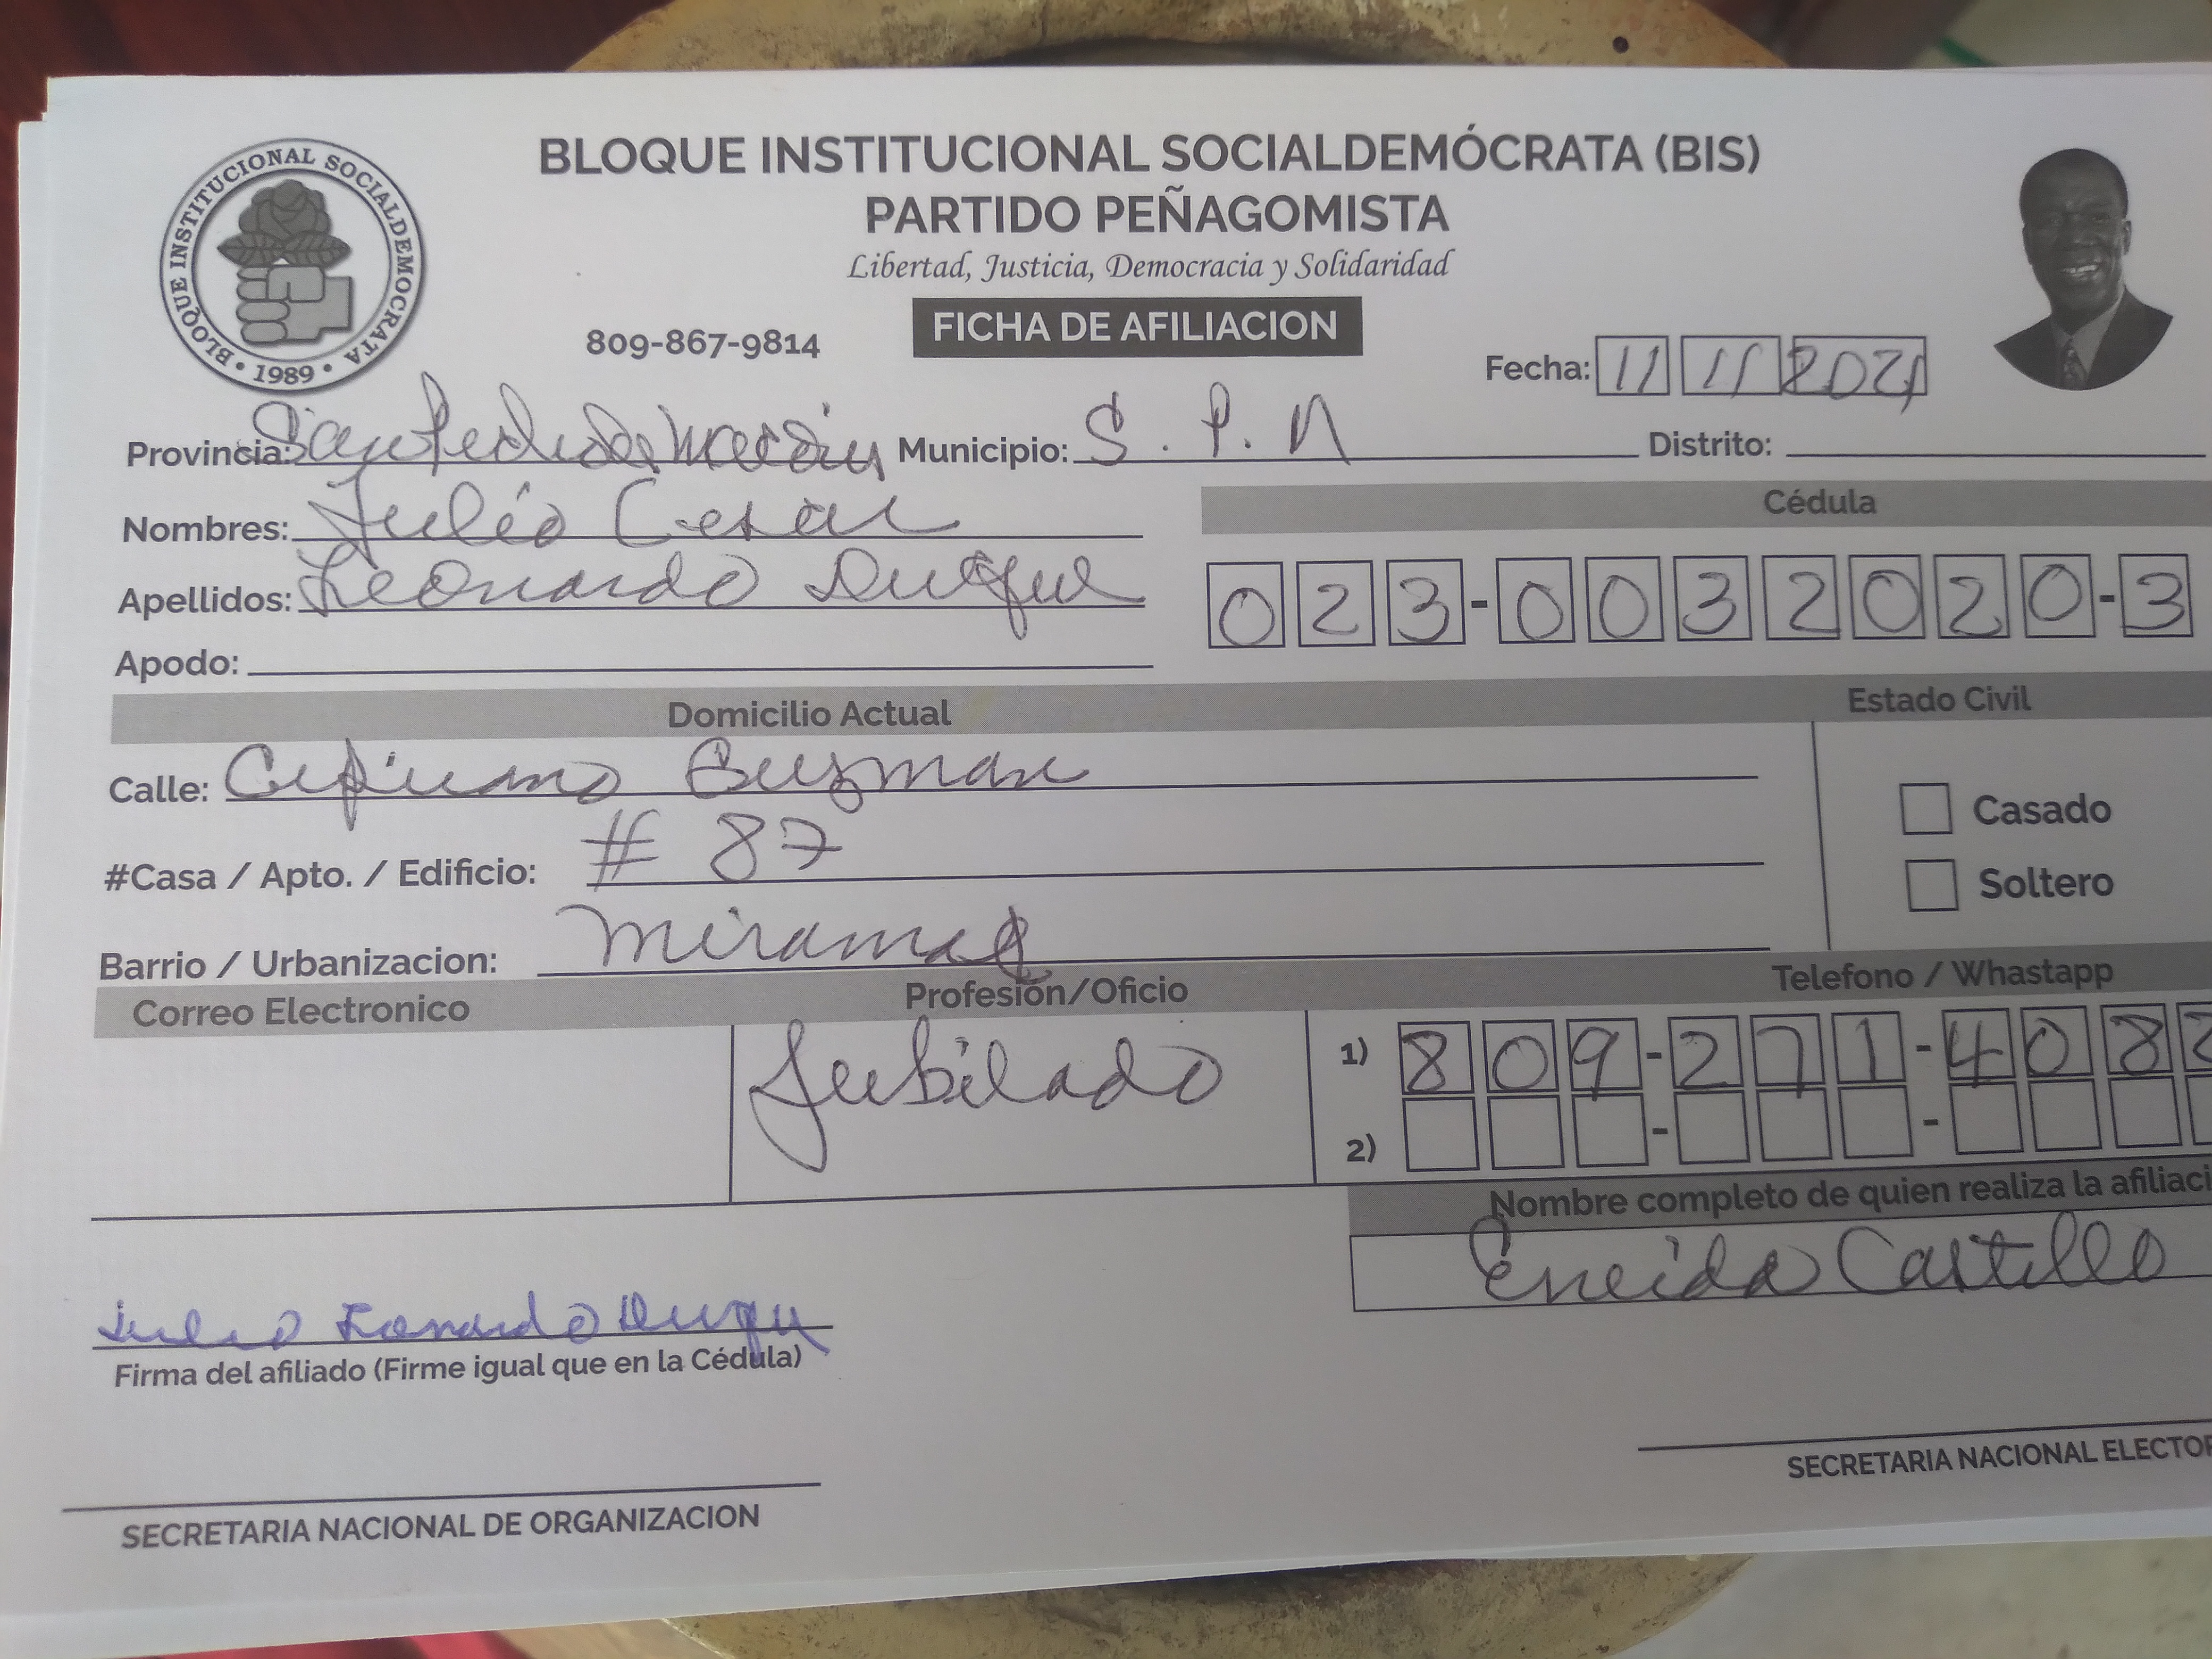 BLOQUE INSTITUCIONAL SOCIALDEMÓCRATA (BIS)
PARTIDO PEÑAGOMISTA
Libertad, Justicia, Democracia y Solidaridad
BLOQUE INSTITUCIONAL SOCIALDEMOCRATA • 1989 •
809-867-9814
FICHA DE AFILIACION
Fecha: 11 11 2021
Provincia: San Pedro de Macoris Municipio: S. P. M Distrito:
Nombres: Julio Cesar
Cédula
Apellidos: Leonardo Duque
023-0032020-3
Apodo:
Domicilio Actual
Estado Civil
Calle: Guzman
Casado
#Casa / Apto. / Edificio: # 87
Soltero
Barrio / Urbanizacion: Miramar
Correo Electronico
Profesión/Oficio
Telefono / Whastapp
Jubilado
1) 809-271-408
2)
Nombre completo de quien realiza la afiliaci
Eneida Castillo
Julio Leonardo Duque
Firma del afiliado (Firme igual que en la Cédula)
SECRETARIA NACIONAL DE ORGANIZACION
SECRETARIA NACIONAL ELECTOR